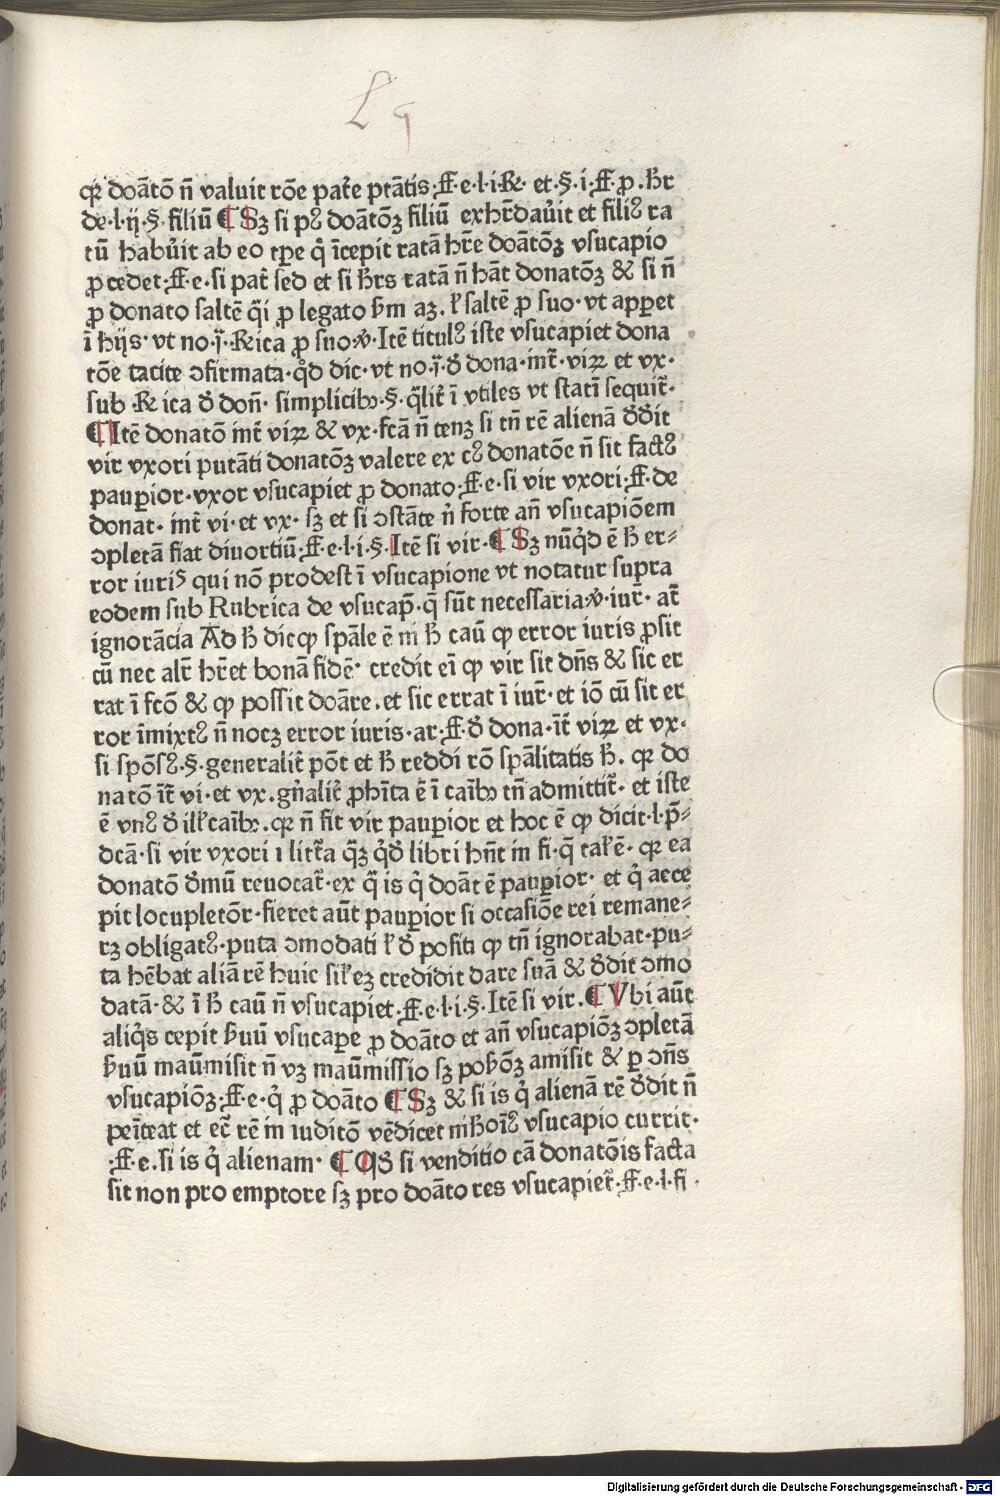 L 9
qꝛ doātō n̄ valuit rōe patr̄e ptātis·ff·e·l·i·R·et·§·i·ff·ꝓ·hr̄
de·l·ij·§·filiū ¶ Sꝫ si pꝰ doātōꝫ filiū exhr̄dau̓it et filiꝰ ra
tū habu̓it ab eo tꝑe q̇ īcepit ratā hr̄e doātōꝫ vsucapio
ꝓcedet·ff·e·si pat̄ sed et si hr̄s ratā n̄ hāt donatōꝫ & si n̄
ꝓ donato saltē q̄i ꝓ legato ẜm aꝫ. ł saltē ꝓ suo·vt apꝑet
ī hijs·vt no·j̄·Rica ꝓ suo·ꝟ·Itē titulꝰ iste vsucapiet dona
tōe tacite ɔfirmata·qd̓ dic·vt no·j̄·đ dona·int̄·viꝝ et vx·
sub·Rica đ don̄·simplicibꝰ·§·q̄lit̄ ī vtiles vt statī sequit̄·
¶ Itē donatō int̄ viꝝ & vx·fcā n̄ tenꝫ si tn̄ rē alienā đđit
vir vxori putāti donatōꝫ valere ex cꝰ donatōe n̄ sit factꝰ
paupior·vxor vsucapiet ꝓ donato·ff·e·si vir vxori·ff·de
donat·int̄ vi·et vx·sꝫ et si ɔstāte n̓ forte an̄ vsucapiōem
ɔpletā fiat diuortiū·ff·e·l·i·§·Itē si vir·¶ Sꝫ nūqd̓ ē h̄ er⸗
ror iuris qui nō prodest ī vsucapione vt notatur supra
eodem sub Rubrica de vsucap̄·q̄ sūt necessaria·ꝟ·iur̄·at̄
ignorācia Ad h̄ dic ꝙ spāle ē in h̄ caū ꝙ error iuris ꝓsit
cū nec alr̄ hr̄et bonā fidē·credit eī ꝙ vir sit dn̄s & sic er
rat ī fcō & ꝙ possit doāre.et sic errat ī iur̄·et iō cū sit er
ror īmixtꝰ n̄ nocꝫ error iuris·ar·ff·đ dona·īt̄ viꝝ et vx·
si spōsꝰ·§·generalit̄ pōt et h̄ reddi rō spālitatis h̄. qꝛ do
natō īt̄ vi·et vx.gn̄alit̄ ꝓhīta ē ī caībꝰ tn̄ admittit̄·et iste
ē vnꝰ đ ill̄ caībꝰ.qꝛ n̄ fit vir paupior et hoc ē ꝙ dicit·l·p̄⸗
dcā·si vir vxori ı litt̄a q̄ꝫ qđ libri hn̄t in fi·q̄ tał ē·qꝛ ea
donatō đmū reuocat̄·ex q̄ is q̇ doāt ē paupior·et q̇ acce
pit locupletōr·fieret aūt paupior si occasiōe rei remane⸗
rꝫ obligatꝰ·puta ɔmodati ł đpositi ꝙ tn̄ ignorabat·pu⸗
ta hēbat aliā rē huic siłeꝫ credidit dare suā & đđit ɔmo
datā·& ī h̄ caū n̄ vsucapiet·ff·e·l·i·§·Itē si vir.¶ Vbi aūt
aliq̇s cepit ẜuū vsucaꝑe ꝓ doāto et an̄ vsucapiōꝫ ɔpletā
ẜuū maūmisit n̄ vꝫ maūmissio sꝫ poẜōꝫ amisit & ꝑ ɔn̄s
vsucapiōꝫ·ff·e·q̇ ꝓ doāto ¶ Sꝫ & si is q̇ alienā rē đđit n̄
peīteat et ec̄ rē in iuditō vēdicet nihoīꝰ vsucapio currit·
·ff·e.si is q̇ alienam·¶ Qđ si venditio cā donatōis facta
sit non pro emptore sꝫ pro doāto res vsucapiet̄·ff·e·l·fi·
Digitalisierung gefördert durch die Deutsche Forschungsgemeinschaft - DFG